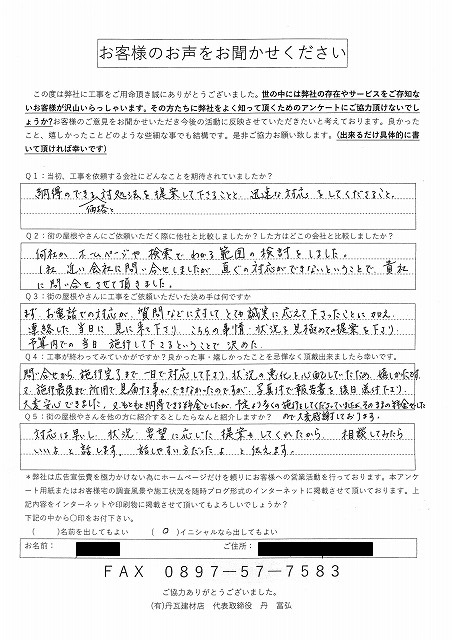 お客様のお声をお聞かせください
この度は弊社に工事をご用命頂き誠にありがとうございました。世の中には弊社の存在やサービスをご存知な
いお客様が沢山いらっしゃいます。その方たちに弊社をよく知って頂くためのアンケートにご協力頂けないでし
ょうか?お客様のご意見をお聞かせいただき今後の活動に反映させていただきたいと考えております。良かった
こと、嬉しかったことどのような些細な事でも結構です。是非ご協力お願い致します。(出来るだけ具体的に書
いて頂ければ幸いです)
Q1:当初、工事を依頼する会社にどんなことを期待されていましたか?
納得のできる対処法を提案して下さることと、迅速な対応をしてくださること。
価格と
Q2:街の屋根やさんにご依頼いただく際に他社と比較しましたか?した方はどこの会社と比較しましたか?
何社かホームページや検索でわかる範囲の検討をしました。
1社近い会社に問い合せしましたが直ぐの対応ができないということで貴社
に問い合せさせて頂きました。
Q3:街の屋根やさんに工事をご依頼いただいた決め手は何ですか
まず、お電話での対応が、質問などに対してとても誠実に応えて下さったことに加え、
連絡した当日に見に来て下さり、こちらの事情・状況を見極めての提案を下さり
予算内での当日施行して下さるということで決めた。
Q4:工事が終わってみていかがですか?良かった事・嬉しかったことを忌憚なく頂戴出来ましたら幸いです。
問い合せから、施行完了まで一日で対応して下さり、状況の悪化を心配していたため、嬉しかったです。
又、施行最後まで所用で見届ける事ができなかったのですが、写真付で報告書を後日送付下さり、
大変安心できました。又、もともと納得できる料金でしたが、予定より多くの施行をしてくださっていましたが、そのままの料金でした
ので大変感謝しております。
Q5:街の屋根やさんを他の方に紹介するとしたらなんと紹介しますか?
対応は早いし、状況・要望に応じた提案もしてくれたから、相談してみたら
いいよと話します。話しやすい方だったよと伝えます。
*弊社は広告宣伝費を極力かけない為にホームページだけを頼りにお客様への営業活動を行っております。本アンケ
ート用紙またはお客様宅の調査風景や施工状況を随時ブログ形式のインターネットに掲載させて頂いております。上
記内容をインターネットや印刷物に掲載させて頂いてもよろしいでしょうか?
下記の中から〇印をお付下さい。
( )名前を出してもよい (O)イニシャルなら出してもよい
お名前: ご住所:
FAX 0897-57-7583
ご協力ありがとうございました。
(有)丹亙建材店 代表取締役 丹 富弘